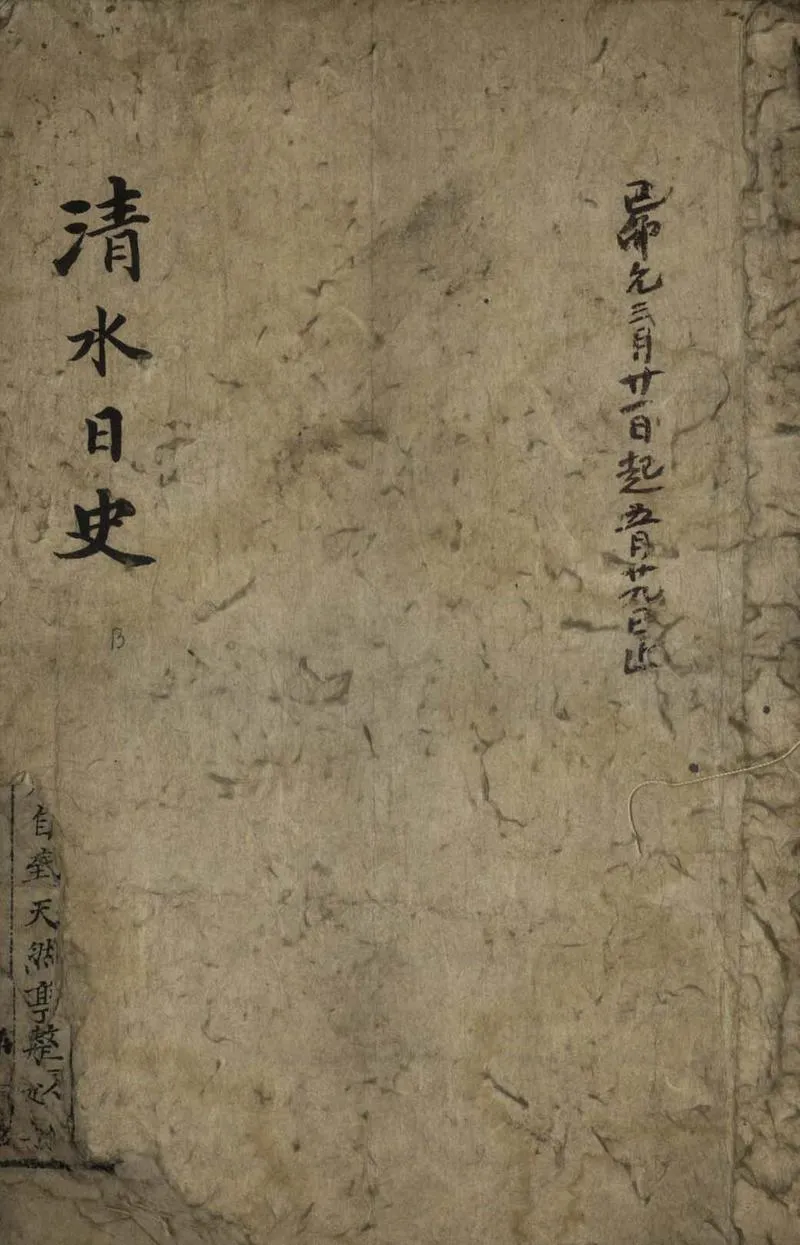 己卯元三月廿一日起五月廿九日止
清水日史
B
自
天然亭整